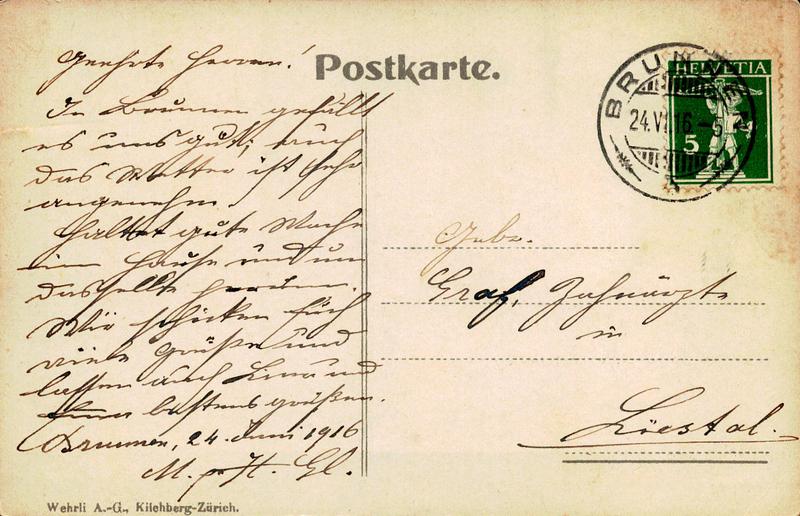 Geehrte Herren!
Postkarte.
HELVETIA
5
BRUNNEN
24.VI.16-5
In Brunnen gefällt
es uns gut, auch
das Wetter ist sehr
angenehm.
Haltet gute Wache
im Hause und um
dasselbe herum.
Wir schicken Euch
viele Grüße und
lassen auch Lina und
bestens grüßen.
Brunnen, 24. Juni 1916
M. H. Gl.
Gebr.
Graf, Zahnärzte
in
Liestal.
Wehrli A.-G., Kilchberg-Zürich.